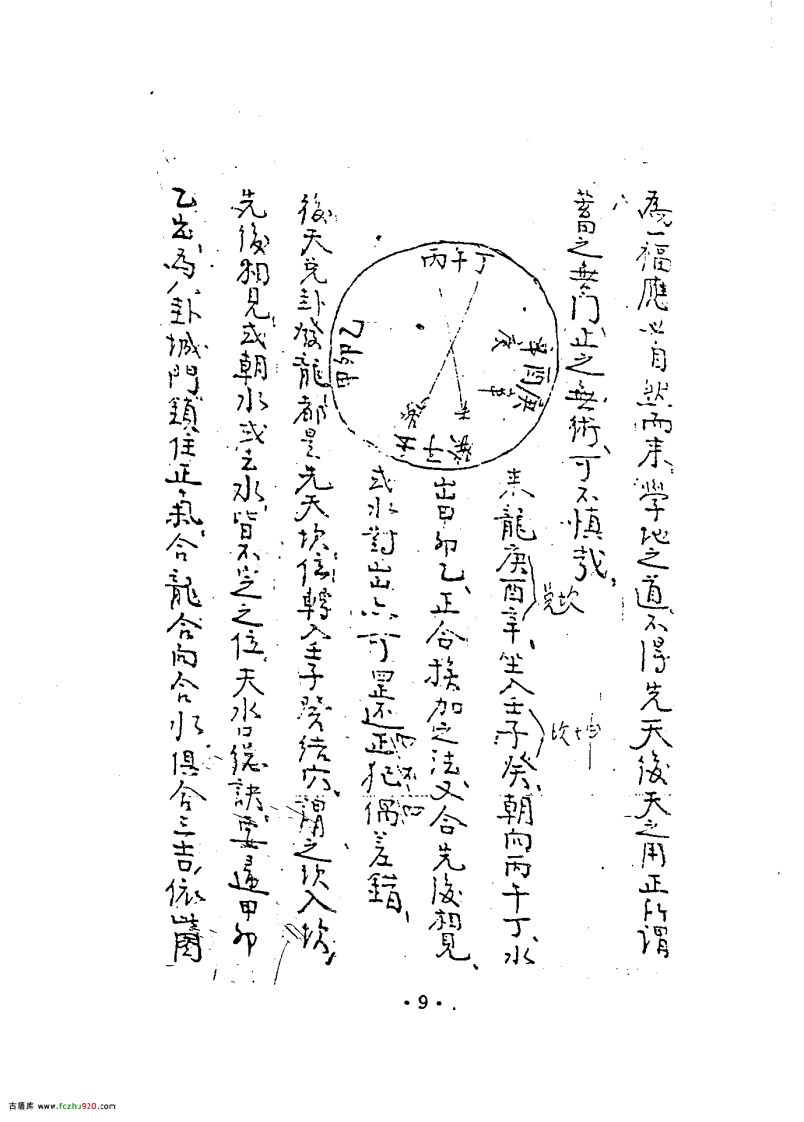 為一福應必自然而来、學地之道、不得先天後天之用正所謂
蓄之無門、止之無術、可不慎哉、
丙午丁
乙卯甲
庚酉辛
来龍庚酉辛、坐入壬子癸、朝向丙午丁、水
兌坎
坎坤
出甲卯乙、正合挨加之法、又合先後相見、
或水對出亦可
犯偶差錯、
後天兌卦發龍都是先天坎位、轉入壬子癸結穴、謂之坎入坎、
先後相見、或朝水或去水、皆不
之位、天水口
訣、要
甲卯
乙出、為八卦城門、鎖住正氣、合龍合向合水、俱合三吉、依
圖
·9·
古籍库 www.fozhu920.com